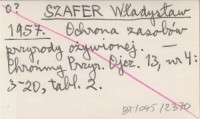 o?
SZAFER Władysław
1957. Ochrona zasobów
przyrody ożywionej. —
Chrońmy Przyr. Ojcz. 13, nr 4:
3-20, tabl. 2.
BT/045/2370